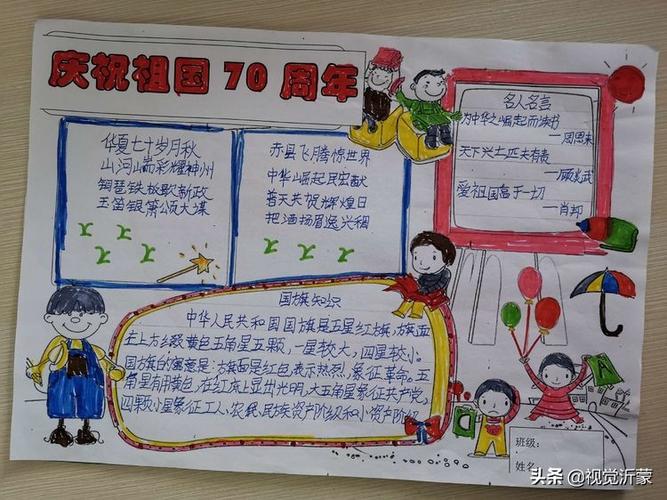 庆祝祖国70周年
华夏七十岁月秋
山河耑彩耀神州
铜琶铁板歌新政
玉笛银箫颂大谋
赤县飞腾惊世界
中华崛起民宏猷
普天共贺辉煌日
把酒扬眉逸兴稠
名人名言
为中华之崛起而读书
—周恩来
天下兴亡匹夫有责
—顾炎武
爱祖国高于一切
—肖邦
国旗知识
中华人民共和国国旗是五星红旗,旗面
左上方缀黄色五角星五颗,一星较大,四星较小。
国旗的寓意是:旗面是红色,表示热烈,象征革命。五
角星用黄色,在红底上显出光明,大五角星象征共产党,
四颗小星象征工人、农民、民族资产阶级和小资产阶级
A
班级:
姓名
头条 @视觉沂蒙